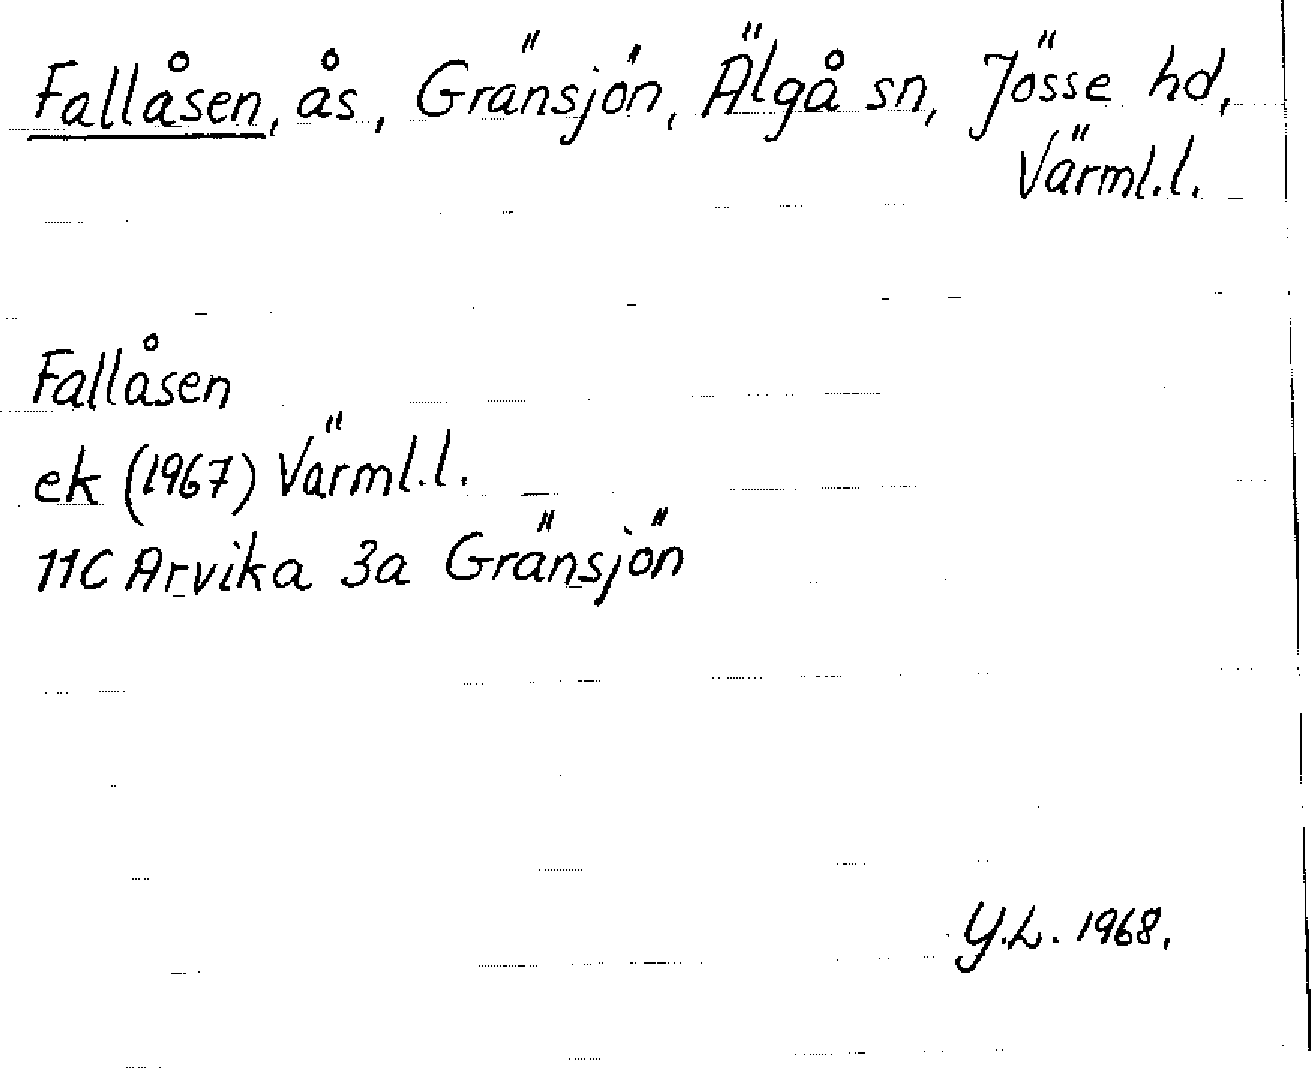 Fallåsen, ås, Gränsjön, Älgå sn, Jösse hd,
Värml.l.
Fallåsen
ek (1967) Värml.l.
11C Arvika 3a Gränsjön
Y.L. 1968.